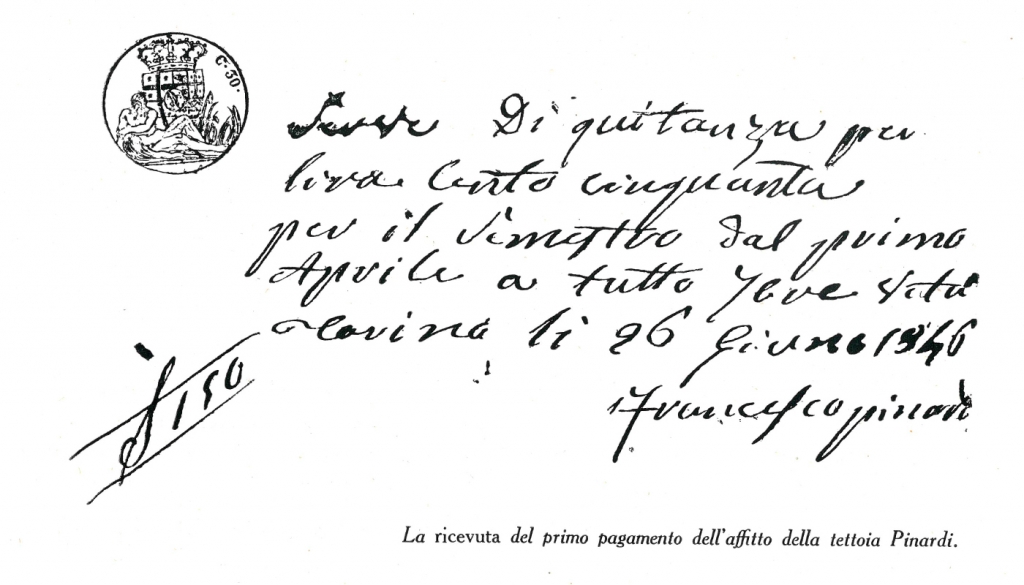 C. 30.
Serve Di quitanza per
lira Cento cinquanta
per il simestro dal primo
Aprile a tutto
Torino li 26 Giugno 1846
£ 150
Francesco pinardi
La ricevuta del primo pagamento dell'affitto della tettoia Pinardi.